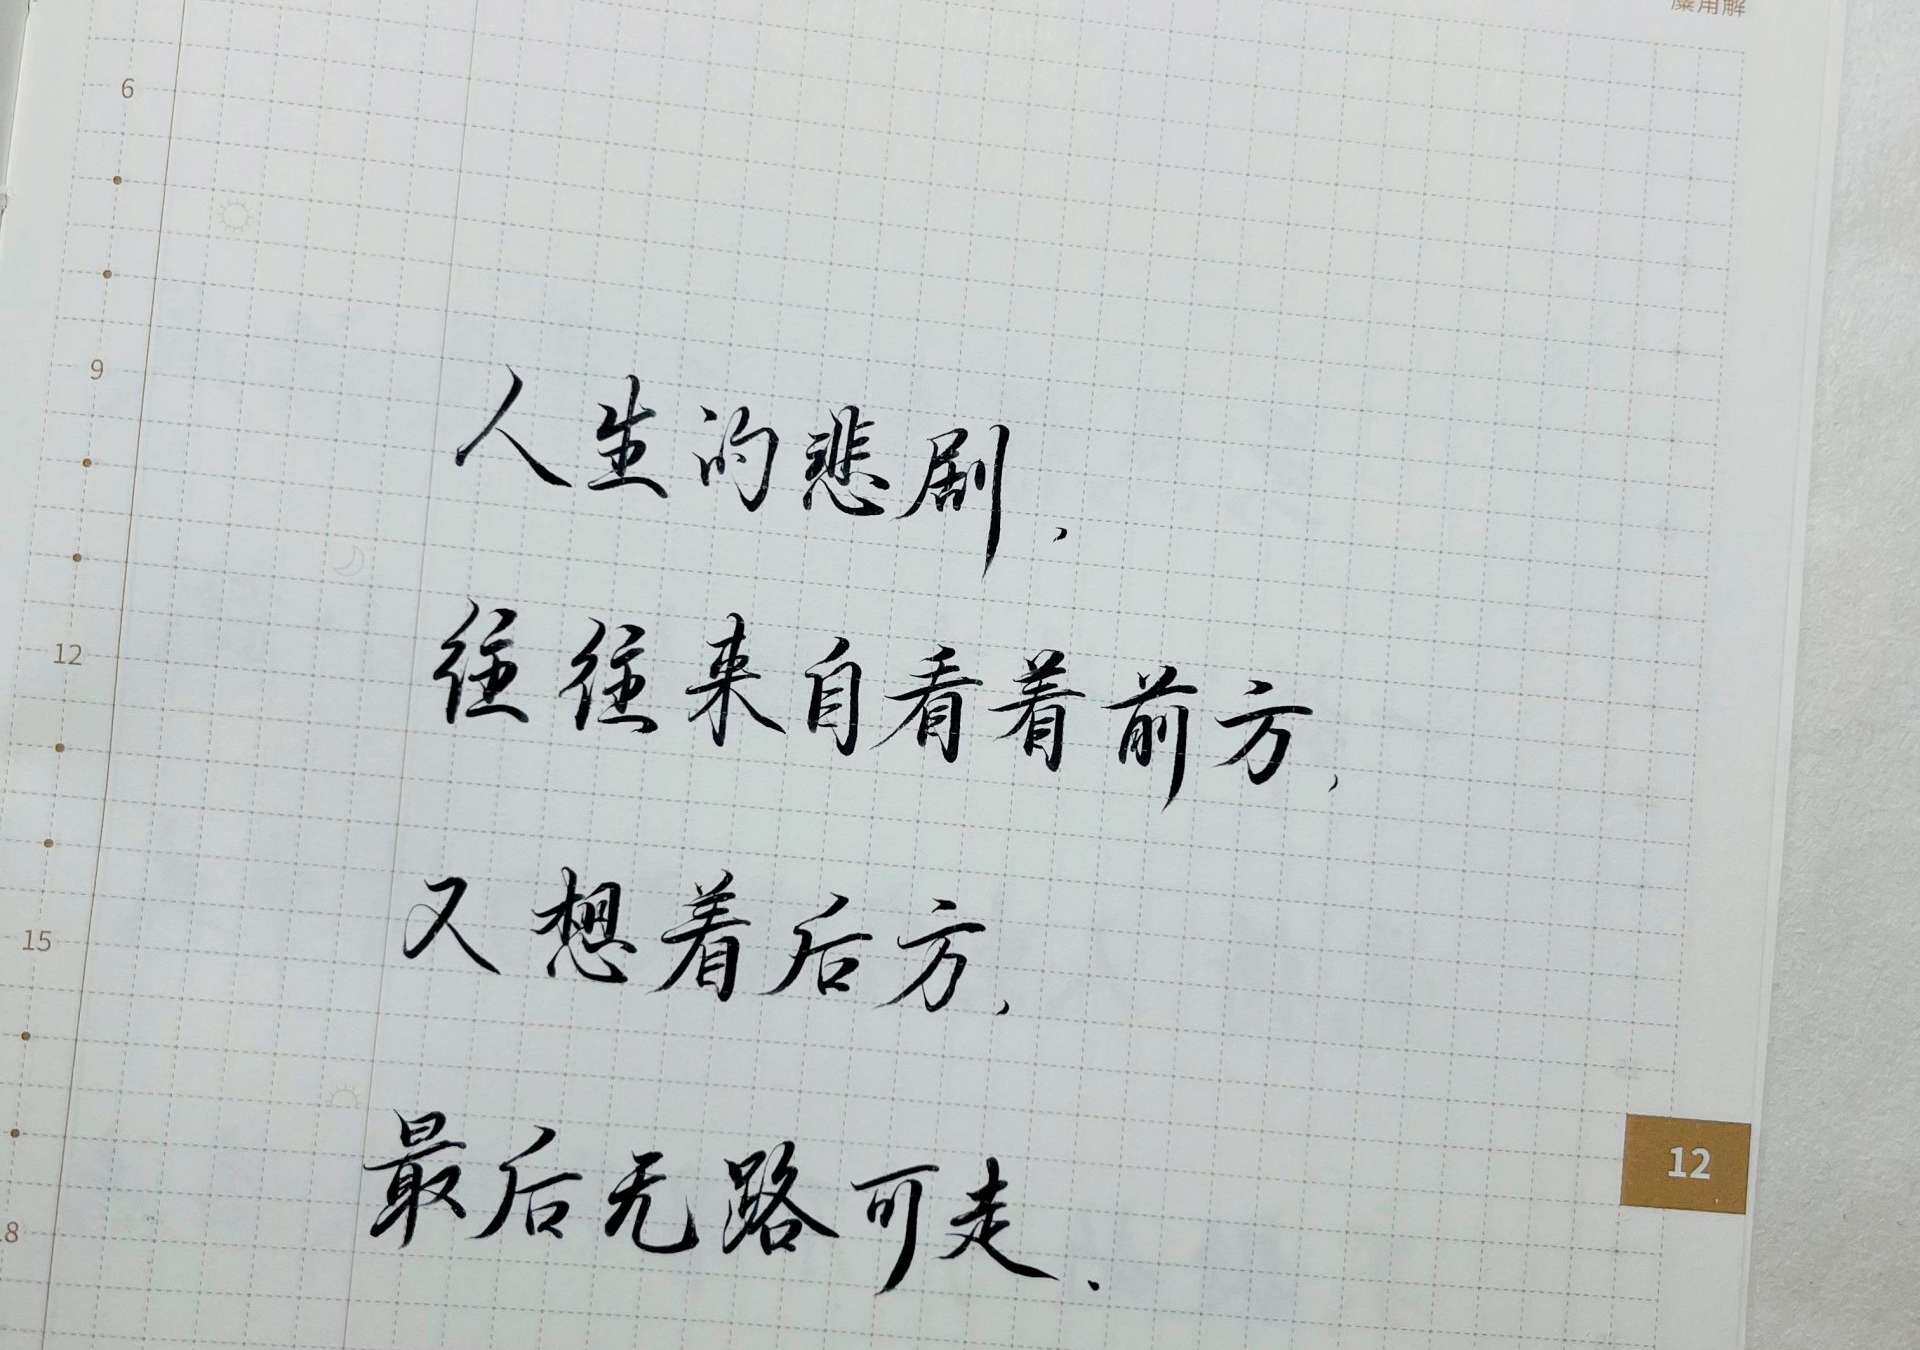 6
9
人生的悲剧,
12
往往来自看着前方,
又想着后方,
15
12
最后无路可走.